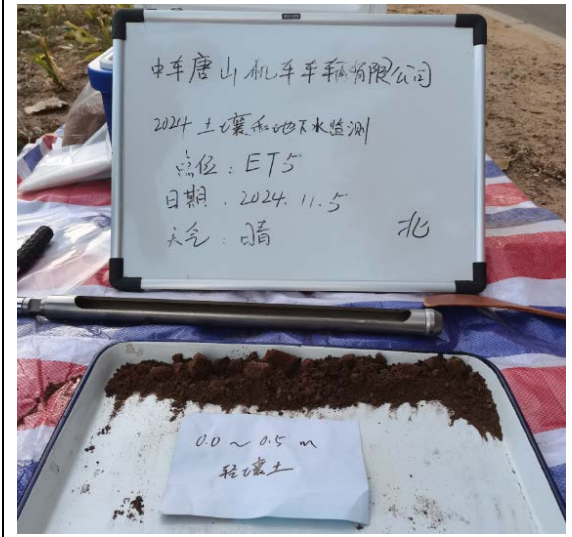 中车唐山机车车辆有限公司
2024 土壤和地下水监测
点位：ET5
日期：2024.11.5
天气：晴
北
0.0～0.5 m
轻壤土